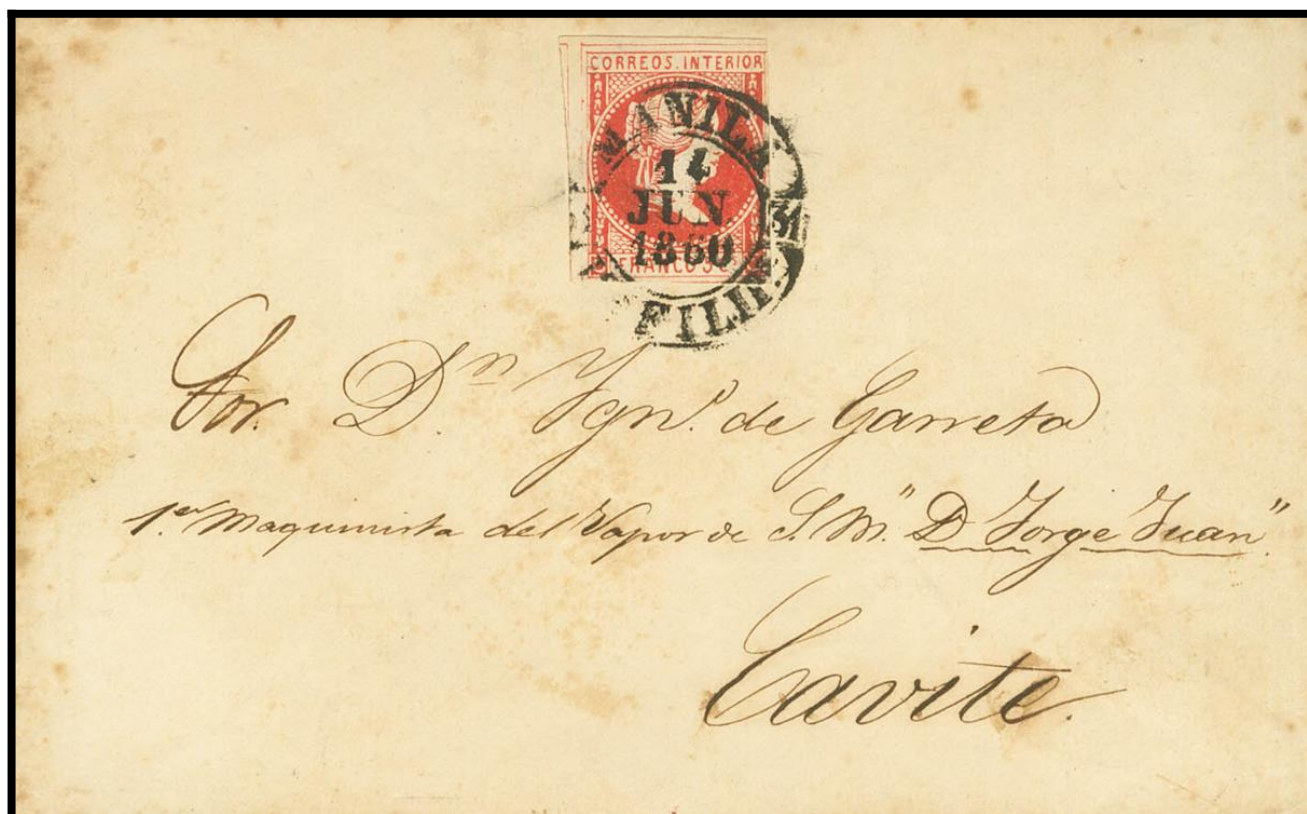 CORREOS. INTERIOR
MANILA
14
JUN.
1860
31
FILIP.
FRANCO 5 C
Sor. Dn Ygn.º de Garreta
1er Maquinista del Vapor de S. M. "D Jorge Juan".
Cavite.